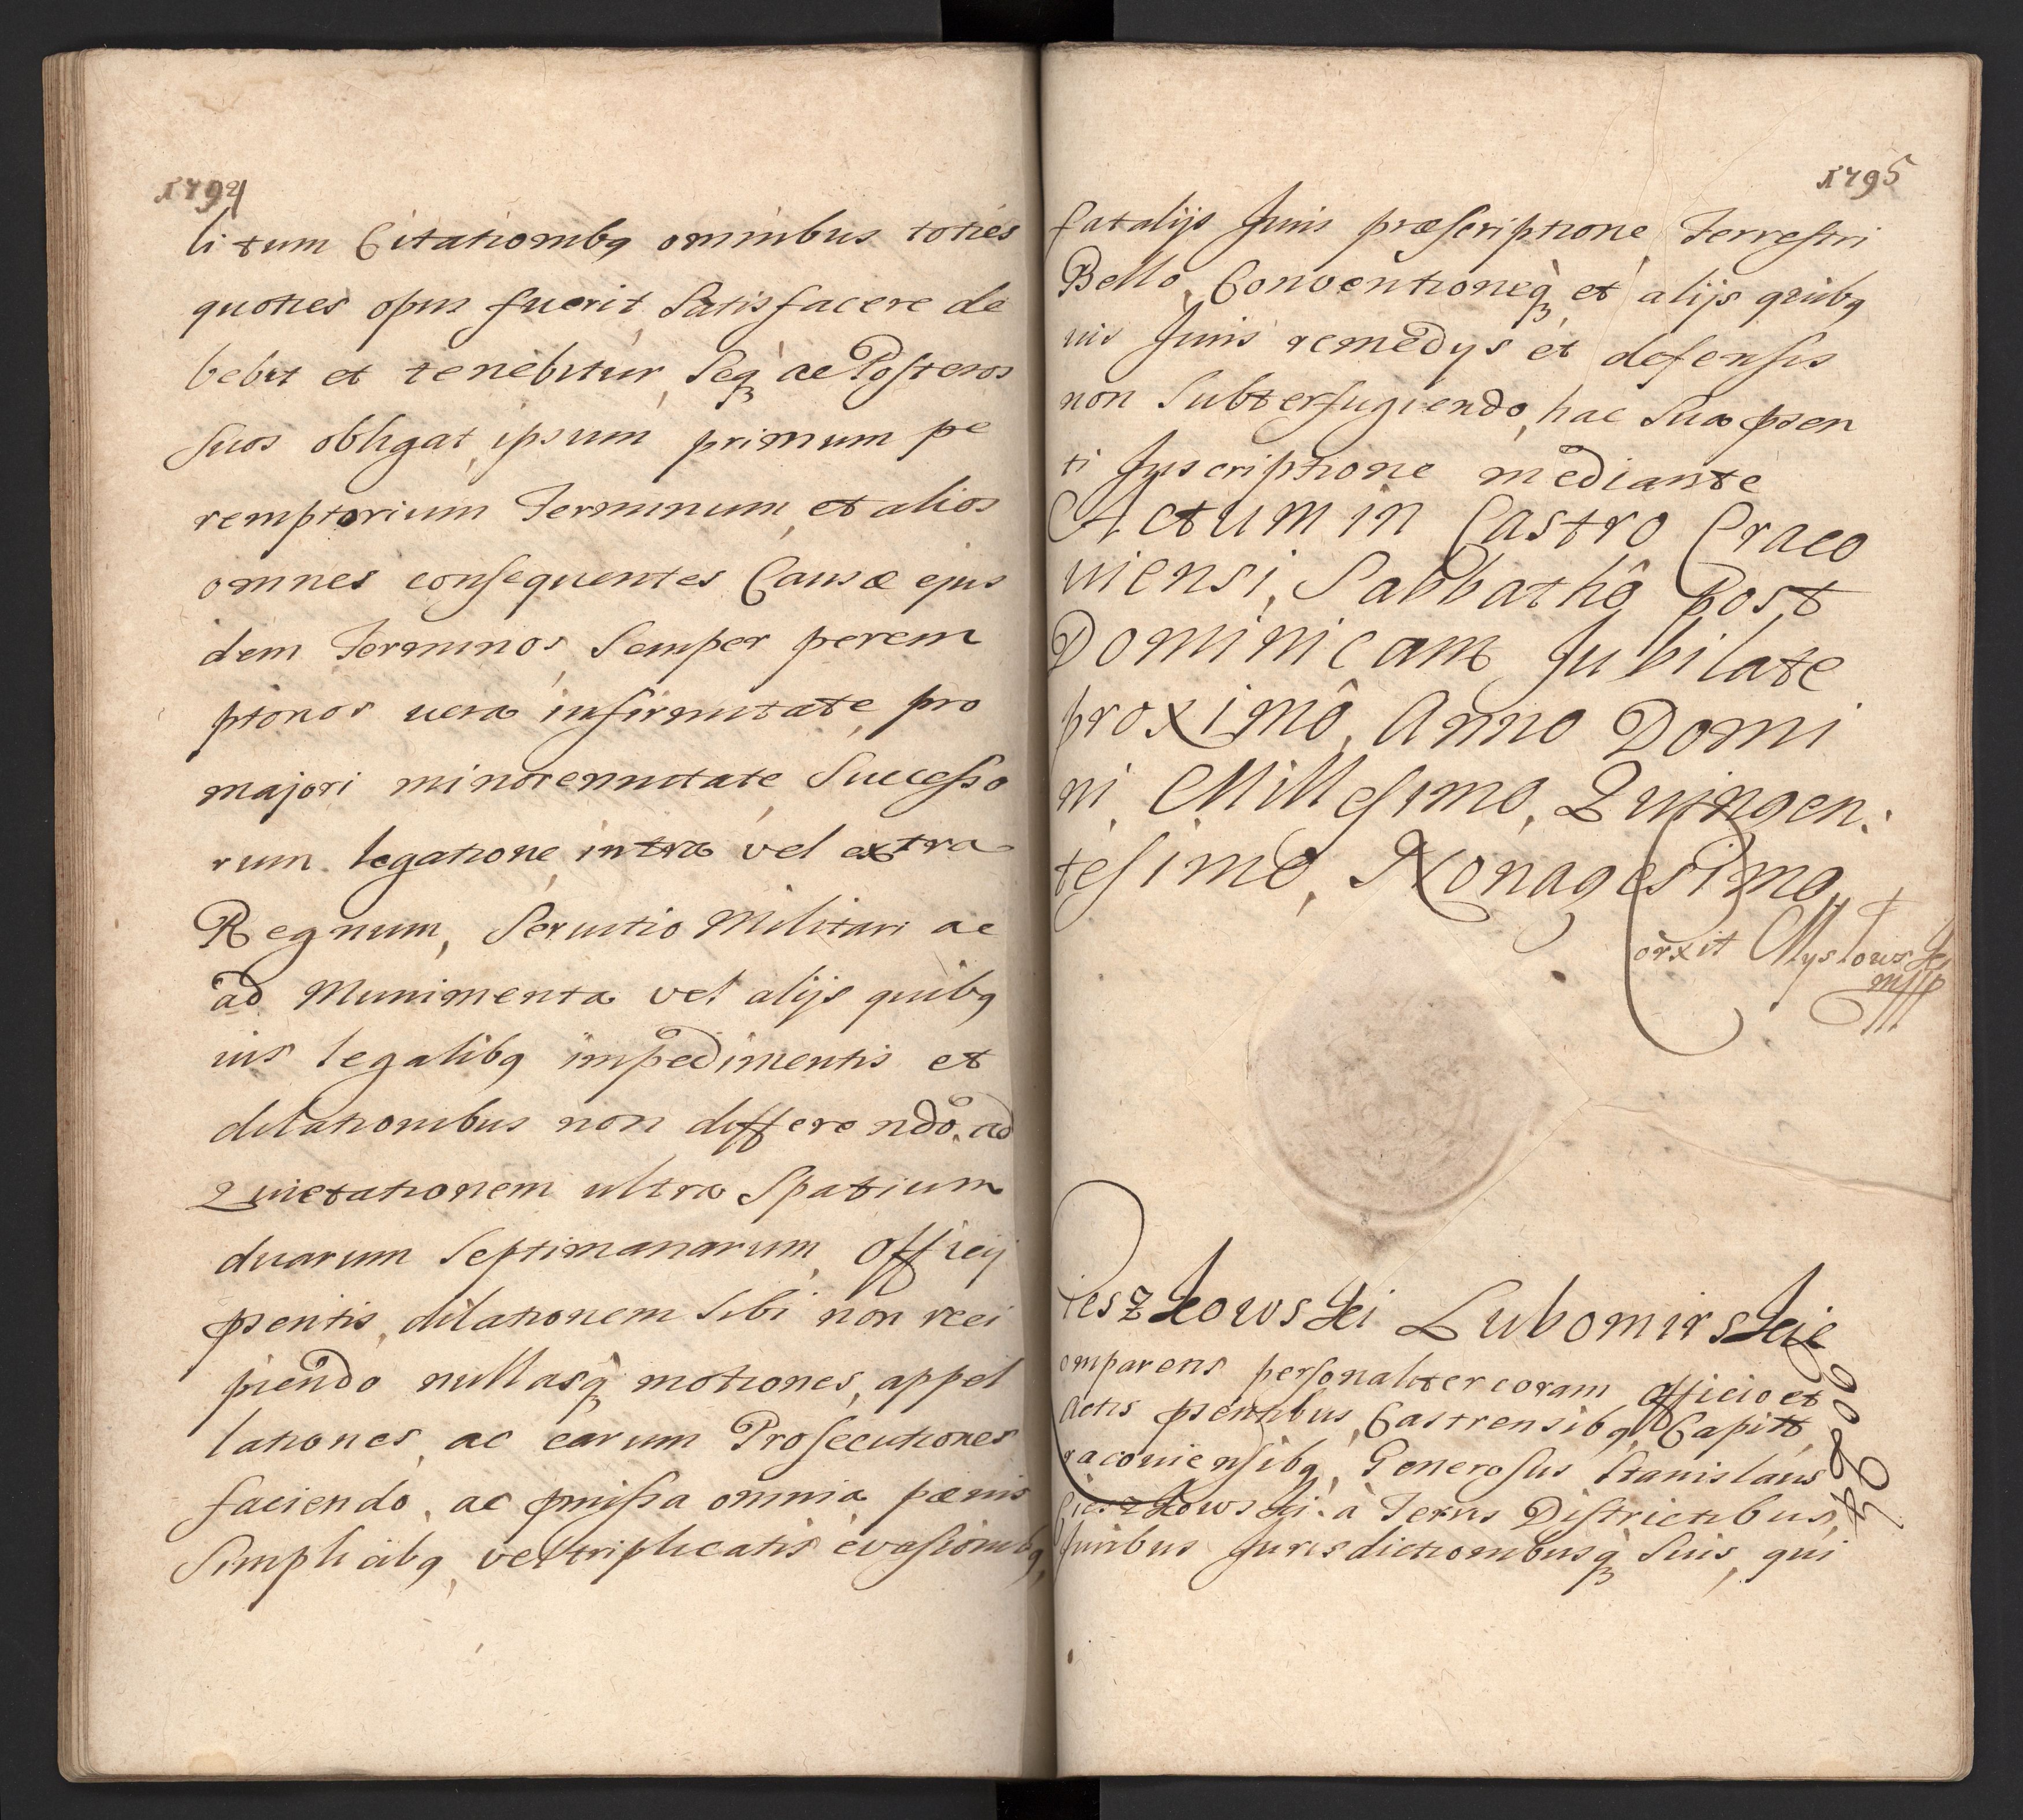 1794
litum Citationibq omnibus toties
quoties opus fuerit Satisfacere de
bebit et tenebitur, Seq; ac Posteros
suos obligat, ipsum primum pe
remptorium Terminum, et alios
omnes consequentes Causæ ejus
dem Terminos, Semper perem
ptorios vera infirmitate, pro
majori minorennitate, Successo
rum legatione, intra vel extra
Regnum, Servitio Militari ac
ad Munimenta vel alijs quibq
uis legalibq impedimentis et
dilationibus non differendo, ad
Quietationem ultra Spatium
duarum Septimanarum, Officij
pñtis, dilationem Sibi non reci
piendo nullasq; motiones, appel
lationes, ac earum Prosecutiones
faciendo, ac pmissa omnia pœnis
Simplicibq, vel triplicatis evasionibq,
1795
fatalijs Juris præscriptione, Terrestri
Bello, Conventioneq; et alijs quibq
uis Juris remedys et defensis
non Subterfugiendo, hac Sua pñsen
ti Inscriptione mediante
Actum in Castro Craco
viensi, Sabbathô post
Dominicam Jubilate
proximô, Anno Domi
ni, Millesimo, Quingen:
tesimo, Nonagesimo,
Corxit Mysłowski
mpp
Cieszkowski Lubomirskie
Comparens personaliter coram Officio et
Actis pñsentibus, Castrensibq Capitt,
Cracoviensibq, Generosus Stanislaus
Cieszkowski à Terris Districtibus,
Juribus Jurisdictionibusq; Suis, qui